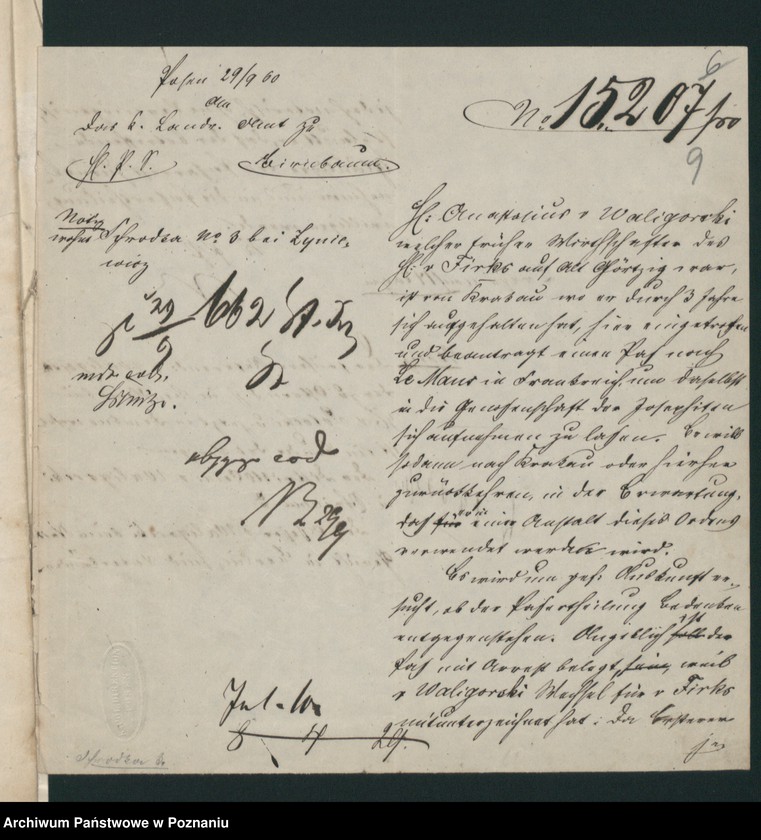 Posen 29/9 60
An
Das k. Landr. Amt zu
H. P. S. Birnbaum.
No 15,207/60
6
9
Schrodka No 3 bei
H. Anastasius v Waligorski
welcher früher Wirthschafter des
H. v Firks auf Alt Görtzig war,
ist von Krakau wo er durch 3 Jahre
sich aufgehalten hat, hier eingetroffen
und beantragt einen Paß nach
Le Mans in Frankreich, um daselbst
in die Genossenschaft der Josephiten
sich aufnehmen zu lassen. Er will
sodann nach Krakau oder hierher
zurückkehren, in der Erwartung,
daß für eine Anstalt dieses Ordens
verwendet werden wird.
Es wird um gef: Auskunft er-
sucht, ob der Paßertheilung Bedenken
entgegenstehen. Angeblich soll ist der
Paß mit Arrest belegt sein, weil
v Waligorski Wechsel für v Firks
mitunterzeichnet hat; da Ersterer
29/9 662
NB 29/9
Schrodka 6
Archiwum Państwowe w Poznaniu